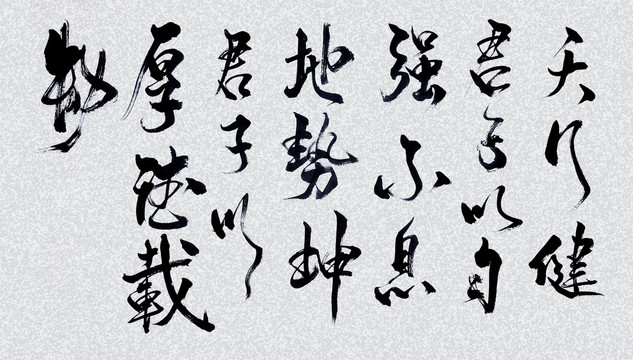 天行健
君子以自
强不息
地勢坤
君子以
厚德載
物